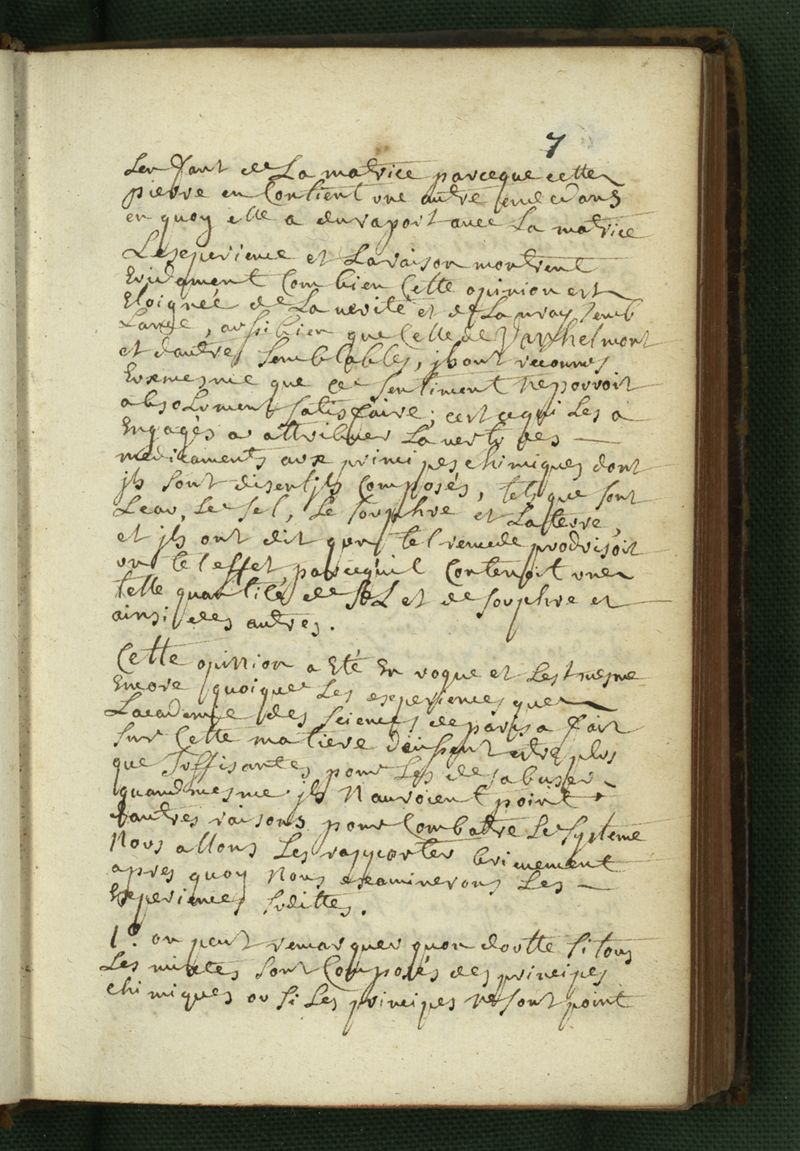 7
Lenfant de La matrice parceque cette
pierre en Contient une autre endedans
en quoy elle a du raport avec La matrice
Lexperience et Laraison montrent
Evidament Combien Cette opinion est
Eloignée de La verité et de La vray semb
Lance, aussibien que Celle de Vanhelmont
et dautres Semblables, jls ont reconnus
Euxmesme que Ce sentiment nepouvoit
absolument satisfaire, cest cequi Les a
Engagés a attribuer La vertu des
medicaments aux principes chimiques dont
jls sont disentjls Composés, tels que sont
Leau, Le sel, Le souphre et La terre,
et jls ont dit quun tel remede produisoit
un tel effet parcequil Contenoit une
telle quantité de Sel et de souphre et
ainsi des autres.
Cette opinion a Eté En vogue et Lest mesme
Encore quoique Les experiences que
Lacademie des Sciences de paris a fait
sur Cette matiere deussent etre plus
que suffisantes pour Les desabuser
quandmesme jls Nauroient point
dautres raisons pour Combatre Le systeme
Nous allons Les rapporter brievement
apres quoy Nous examinerons Les
Experiences sudittes.
1.° on peut remarquer quon doutte si tous
Les mixtes sont Composés des principes
chimiques ou si Les principes ne sont point